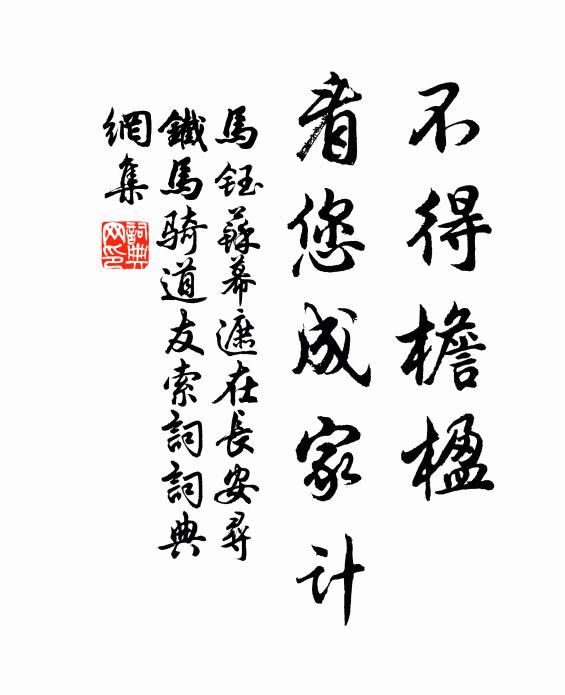 不得檐楹
看您成家计
馬鈺蘇幕遮在長安尋
鐵馬騎道友索詞詞典
網集
詞典
网印